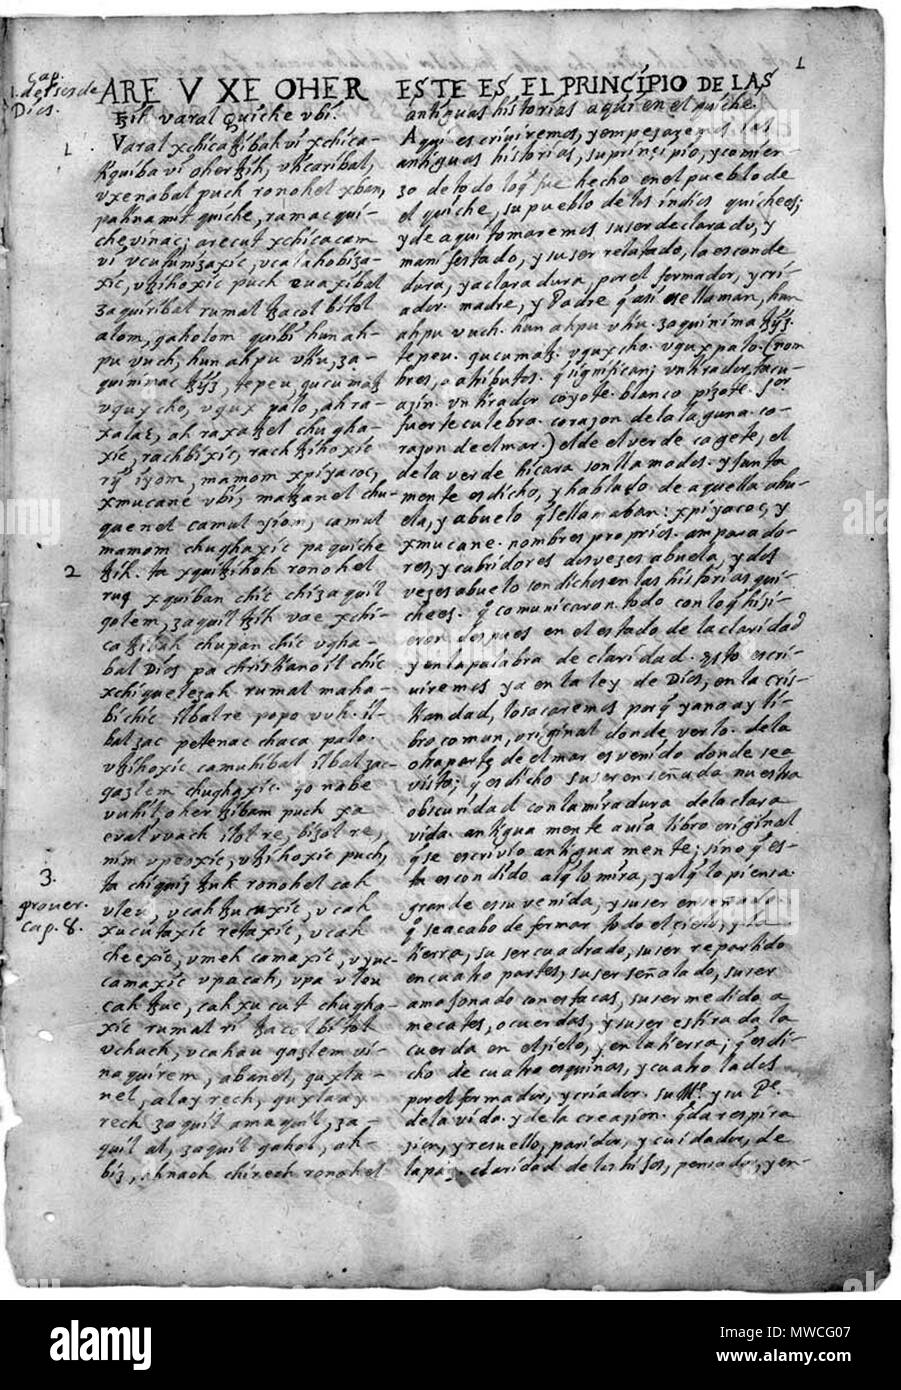 1
cap.
1. de
Dios.
ARE V XE OHER
tzih varal Quiche vbi.
1.
Varal xchicatzibah vi xchica-
tiquiba vi oher tzih, vticaribal,
vxenabal puch ronohel xban,
pa tinamit quiche, ramac qui-
che vinac; arecut xchicacam
vi vcutunizaxic, vcalahobiza-
xic, vtzihoxic puch euaxibal
zaquiribal rumal tzacol bitol
alom, qaholom quibi hun ah-
pu vuch, hun ahpu vtiu, za-
quinimac tzyz, tepeu, qucumatz
vqux cho, vqux palo, ah ra-
xa lac, ah raxa tzel chugha-
xic, rachbixic, rachtzihoxic
ry iyom, mamom xpiyacoc,
xmucane vbi, matzanel chu-
quenel camul iyom, camul
mamom chughaxic pa quiche
2
tzih. ta xquitzihoh ronohel
ruq xquiban chic chi zaquil
qolem, zaquil tzih vae xchi-
catzibah chupan chic vgha-
bal Dios pa christianoil chic
xchiquelezah rumal maha-
bi chic ilbal re popo vuh. il-
bal zac petenac chaca palo.
vtzihoxic camuhibal ilbal zac
qazlem chughaxic. qo nabe
vuhil, oher tzibam puch xa
eval vvach ilol re, bizol re,
nim vpeoxic, vtzihoxic puch,
3.
prover.
cap. 8.
ta chiquis tzuk ronohel cah
vleu, vcah tzucuxic, vcah
xucutaxic retaxic, vcah
cheexic, vmeh camaxic, vyuc-
camaxic vpa cah, vpa vleu
cah tzuc, cah xucut chugha-
xic rumal ri tzacol bitol
vchuch, vcahau qazlem vi-
naquirem, abanel, quxla-
nel, alay rech, quxlaay
rech zaquil amaquil, za-
quil al, zaquil qahol, ah-
biz, ahnaoh chirech ronohel
ESTE ES EL PRINCIPIO DE LAS
antiguas historias aqui en el quiche.
Aqui escriviremos, y empezaremos las
antiguas historias, su principio, y comien-
zo de todo loq fue hecho en el pueblo de
el quiche, su pueblo de los indios quichees;
y de aqui tomaremos su ser declarado, y
manifestado, y su ser relatado, la esconde
dura, y aclaradura, por el formador, y cri-
ador. madre, y Padre q asi se llaman, hun
ahpu vuch. hun ahpu vtiu. zaquinima tzyz.
tepeu. qucumatz. vqux cho. vqux palo. (nom
bres, o atributos. q significan; vn tirador, tacu-
azin. vn tirador coyote. blanco pizote.
fuerte culebra. corazon de la laguna. co-
razon de el mar.) el de el verde caxete, el
de la verde hicara son llamados. y junta
mente es dicho, y hablado de aquella abu-
ela, y abuelo q se llamaban: xpiyacoc, y
xmucane. nombres proprios. amparado-
res, y cubridores dos vezes abuela, y dos
vezes abuelo son dichos en las historias qui-
chees. q comunicaron todo con loq hizi-
eron despues en el estado de la claridad
y en la palabra de claridad. esto escri-
viremos ya en la ley de Dios, en la cris-
tiandad, lo sacaremos porq ya no ay li-
bro comun, original donde verlo. de la
otra parte de el mar es venido donde se a
visto; q es dicho su ser enseñada nuestra
obscuridad con la miradura de la clara
vida. antiguamente avia libro original
q se escrivio antiguamente; sino q es-
ta escondido al q lo mira, y al q lo piensa.
grande es su venida, y su ser enseñado.
q se acabo de formar todo el cielo, y la
tierra, su ser cuadrado, su ser repartido
en cuatro partes, su ser señalado, su ser
amojonado con estacas, su ser medido a
mecates, o cuerdas, y su ser estirada la
cuerda en el zielo, y en la tierra; q es di-
cho de cuatro esquinas, y cuatro lados
por el formador, y criador. su Me. y su Pe.
de la vida. y de la creazion. q da respira
zion, y resuello, paridor, y cuidador, de
la paz, claridad de los hijos, pensador, y en-
alamy
Image ID: MWCG07
www.alamy.com